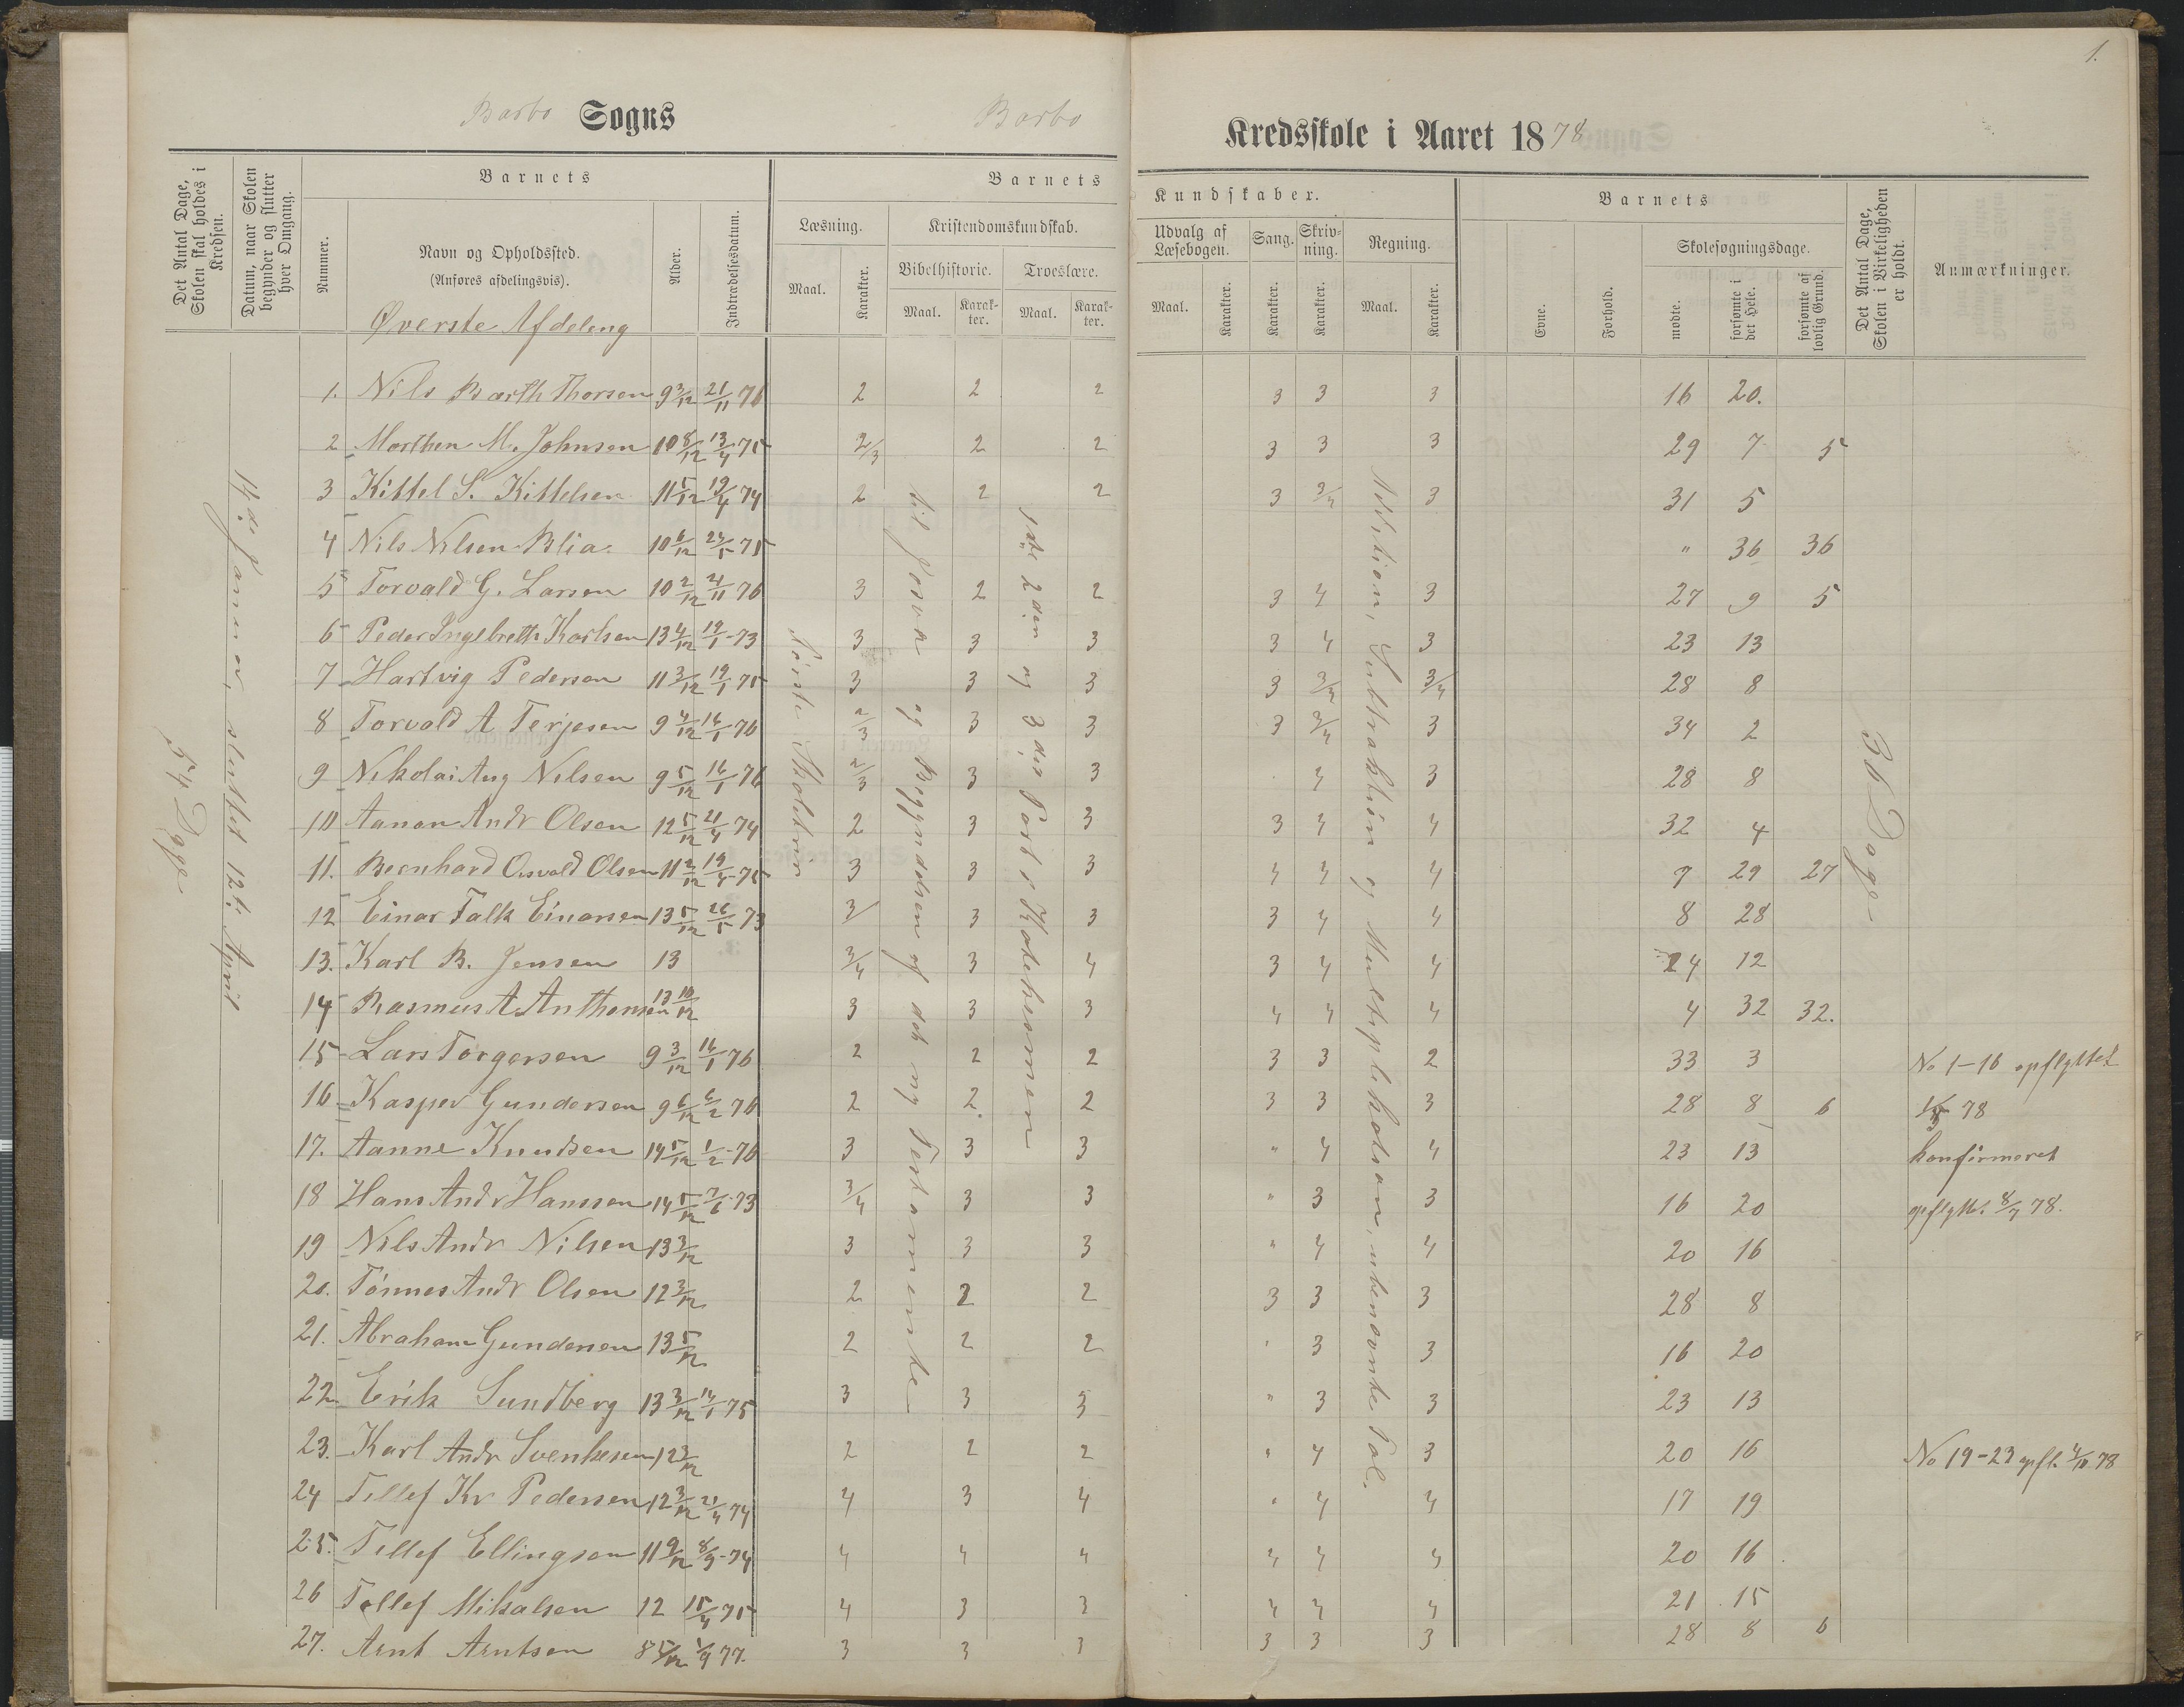 1.
Barbo Sogns Barbo Kredsskole i Aaret 1878
Det Antal Dage, Skolen skal holdes i Kredsen.
Datum, naar Skolen begynder og slutter hver Omgang.
Barnets
Nummer.
Navn og Opholdssted.
(Anføres afdelingsvis).
Alder.
Indtrædelsesdatum.
Barnets Kundskaber.
Læsning. Kristendomskundskab.
Maal. Karakter.
Bibelhistorie. Troeslære.
Maal. Karakter. Maal. Karakter.
Udvalg af Læsebogen. Sang. Skrivning. Regning.
Maal. Karakter. Karakter. Karakter. Maal. Karakter.
Barnets
Evne. Forhold.
Skolesøgningsdage.
mødte. forsømte i det Hele. forsømte af lovlig Grund.
Det Antal Dage, Skolen i Virkeligheden er holdt.
Anmærkninger.
Øverste Afdeling
54 Dage
14de Januar, sluttet 12te April
Første Skoletrin
til Josva og Begyndelsen af det ny Testamente
1ste 2den og 3die Part i Katekismen
Addition, Subtraktion og Multiplikation, ubenævnte Tal.
36 Dage
1. Nils Barth Thorsen 9 3/12 21/11 76 2 2 2 3 3 3 16 20.
2 Marthin M. Johnsen 10 8/12 13/4 75 2/3 2 2 3 3 3 29 7 5
3 Kittel S. Kittelsen 11 5/12 19/4 74 2 2 2 3 3/4 3 31 5
4 Nils Nilsen Blia 10 6/12 24/5 75 " 36 36
5 Torvald G. Larsen 10 2/12 21/11 76 3 2 2 3 4 3 27 9 5
6 Peder Ingebreth Karlsen 13 4/12 19/1 73 3 3 3 3 4 3 23 13
7 Hartvig Pedersen 11 3/12 19/1 75 3 3 3 3 3/4 3/4 28 8
8 Torvald A Terjesen 9 4/12 16/1 76 2/3 3 3 3 3/4 3 34 2
9 Nikolai Aug Nilsen 9 5/12 16/1 76 2/3 3 3 4 3 28 8
10 Aanon Andr Olsen 12 5/12 21/4 74 2 3 3 3 4 4 32 4
11. Bernhard Osvald Olsen 11 2/12 19/4 75 3 3 3 4 4 4 7 29 27
12 Einar Falk Einarsen 13 5/12 26/5 73 3 3 3 3 4 4 8 28
13. Karl B. Jensen 13 3/4 3 4 3 4 4 24 12
14 Rasmus A Anthonsen 13 10/12 3 3 3 4 4 4 4 32 32.
15 Lars Torgersen 9 3/12 16/1 76 2 2 2 3 3 2 33 3 No 1-16 opflyttet
16 Kasper Gundersen 9 6/12 6/2 76 2 2. 2 3 3 3 28 8 6 78
17. Aanne Knudsen 14 5/12 1/2 76 3 3 3 " 4 4 23 13 konfirmeret
18 Hans Andr Hanssen 14 5/12 7/6 73 3/4 3 3 " 3 3 16 20 opflytt. 8/7 78.
19 Nils Andr Nilsen 13 3/12 3 3 3 " 4 4 20 16
20. Tønnes Andr Olsen 12 3/12 2 2 2 3 3 3 28 8
21. Abraham Gundersen 13 5/12 2 2 2 " 3 3 16 20
22 Erik Sundberg 13 3/12 14/1 75 3 3 3 " 3 3 23 13
23. Karl Andr Svenkesen 12 3/12 2 2 2 " 4 3 20 16 No 19-23 opfl. 4/10 78
24 Tellef Kr Pedersen 12 3/12 21/4 74 4 3 4 " 4 4 17 19
25. Tellef Ellingsen 11 9/12 8/9 74 4 4 4 4 4 4 20 16
26 Tellef Mikalsen 12 15/4 75 4 3 3 4 4 4 21 15
27. Arnt Arntsen 8 5/12 1/9 77. 3 3 3 3 3 3 28 8 6